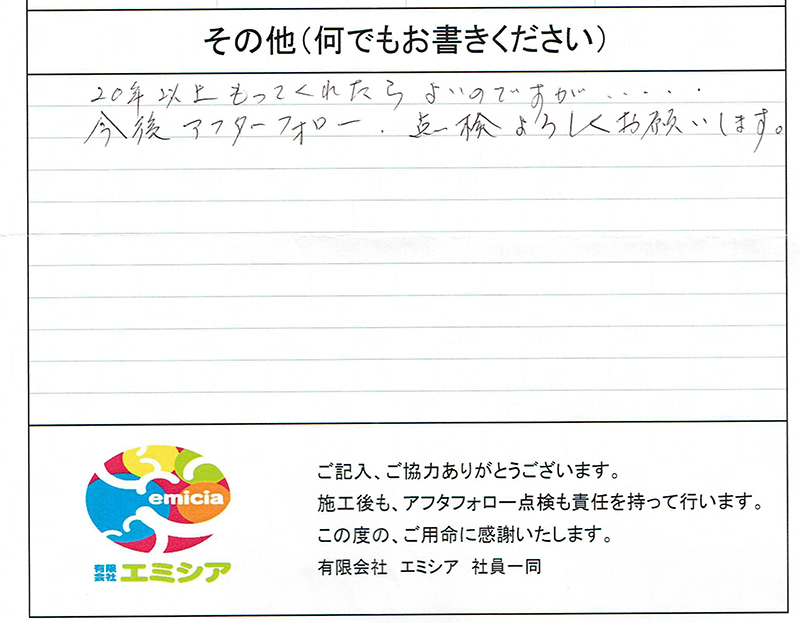 その他（何でもお書きください）
20年以上もってくれたらよいのですが．．．．．
今後アフターフォロー．点検よろしくお願いします。
emicia
有限会社 エミシア
ご記入、ご協力ありがとうございます。
施工後も、アフタフォロー点検も責任を持って行います。
この度の、ご用命に感謝いたします。
有限会社 エミシア 社員一同